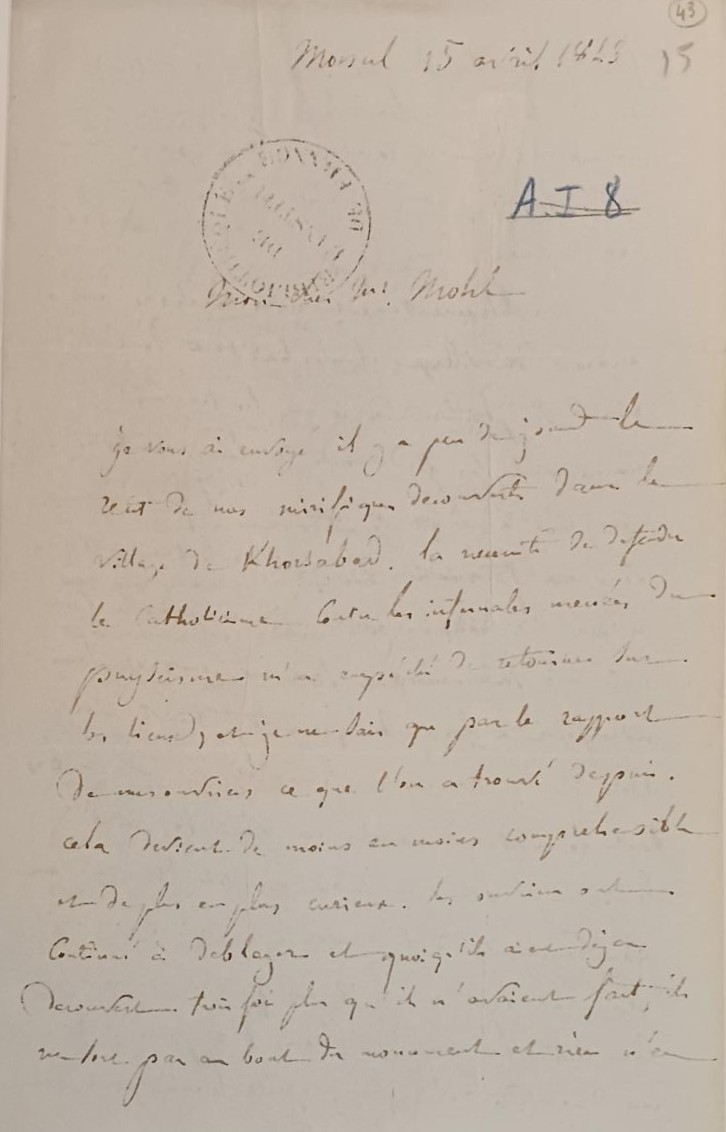 43
Mossul 15 avril 1843
15
A.I 8
Mon cher Mr. Mohl
je vous ai envoyé il y a peu de jours le
recit de nos mirifiques decouvertes dans le
village de Khorsabad. la necessité de defendre
le Catholicisme contre les infernales menées du
puseisme m'a empéché de retourner sur
les lieux, et je ne sais que par le rapport
de mes ouvriers ce que l'on a trouvé depuis.
cela devient de moins en moins comprehensible
et de plus en plus curieux. les ouvriers ont
continué à deblayer et quoiqu'ils aient deja
decouvert trois fois plus qu'il n'avaient fait, ils
ne sont pas au bout du monument et rien n'en